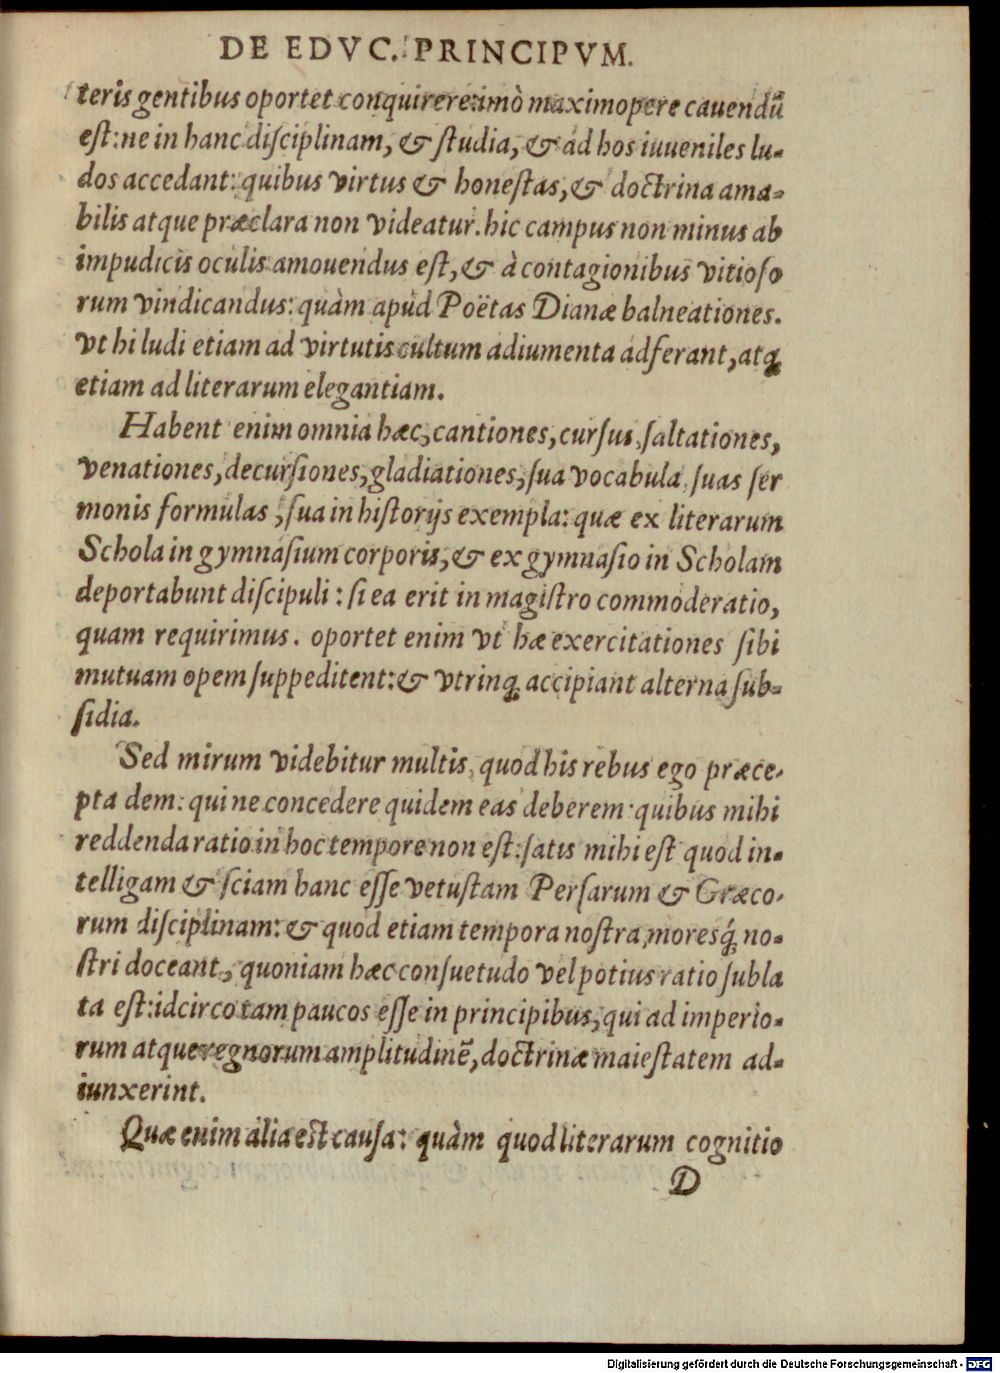 DE EDVC. PRINCIPVM.
teris gentibus oportet conquirere: imò maximopere cauendū
est: ne in hanc disciplinam, & studia, & ad hos iuueniles lu-
dos accedant: quibus virtus & honestas, & doctrina ama-
bilis atque præclara non videatur. hic campus non minus ab
impudicis oculis amouendus est, & à contagionibus vitioso
rum vindicandus: quàm apud Poëtas Dianæ balneationes.
vt hi ludi etiam ad virtutis cultum adiumenta adferant, atq;
etiam ad literarum elegantiam.
Habent enim omnia hæc, cantiones, cursus, saltationes,
venationes, decursiones, gladiationes, sua vocabula, suas ser
monis formulas, sua in historijs exempla: quæ ex literarum
Schola in gymnasium corporis, & ex gymnasio in Scholam
deportabunt discipuli: si ea erit in magistro commoderatio,
quam requirimus. oportet enim vt hæ exercitationes sibi
mutuam opem suppeditent: & vtrinq; accipiant alterna sub-
sidia.
Sed mirum videbitur multis, quod his rebus ego præce-
pta dem: qui ne concedere quidem eas deberem: quibus mihi
reddenda ratio in hoc tempore non est: satis mihi est quod in-
telligam & sciam hanc esse vetustam Persarum & Græco-
rum disciplinam: & quod etiam tempora nostra, moresq́; no-
stri doceant, quoniam hæc consuetudo vel potius ratio subla
ta est: idcirco tam paucos esse in principibus, qui ad imperio-
rum atque regnorum amplitudinē, doctrinæ maiestatem ad-
iunxerint.
Quæ enim alia est causa: quàm quod literarum cognitio
D
Digitalisierung gefördert durch die Deutsche Forschungsgemeinschaft - DFG